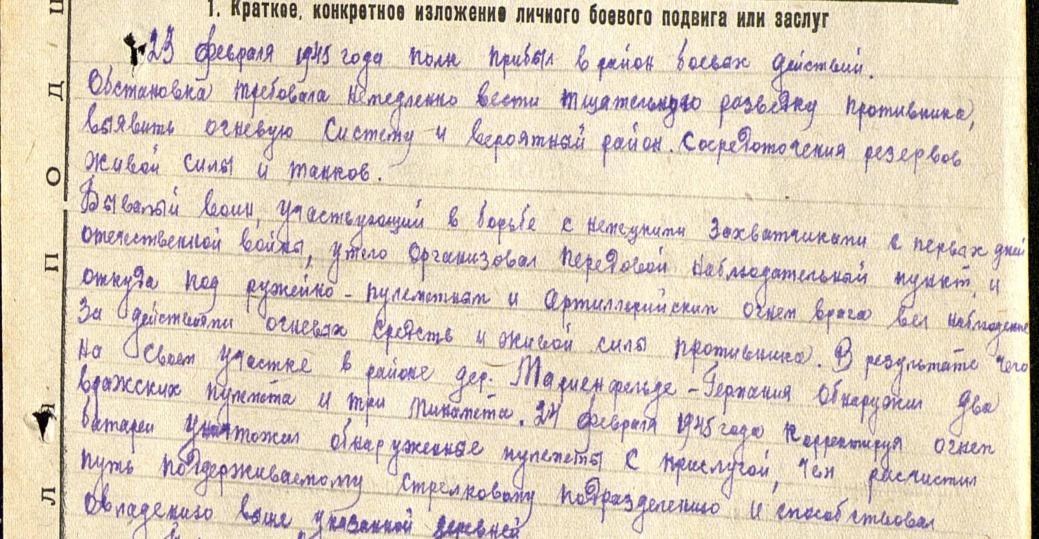 1. Краткое, конкретное изложение личного боевого подвига или заслуг
23 февраля 1945 года полк прибыл в район боевых действий.
Обстановка требовала немедленно вести тщательную разведку противника,
выявить огневую систему и вероятный район. Сосредоточения резервов
живой силы и танков.
Бывалый воин, участвующий в борьбе с немецкими захватчиками с первых дней
отечественной войны, умело организовал передовой наблюдательный пункт, и
откуда под ружейно-пулеметным и артиллерийским огнем врага вел наблюдение
За действиями огневых средств и живой силы противника. В результате чего
на своем участке в районе дер. Мариенфельде - Германия обнаружил два
вражских пулемета и три миномета. 24 февраля 1945 года корректируя огнем
батареи уничтожил обнаруженные пулеметы с прислугой, чем расчистил
путь поддерживаемому стрелковому подразделению и способствовал
овладению выше указанной деревней
П О Д
Л Я